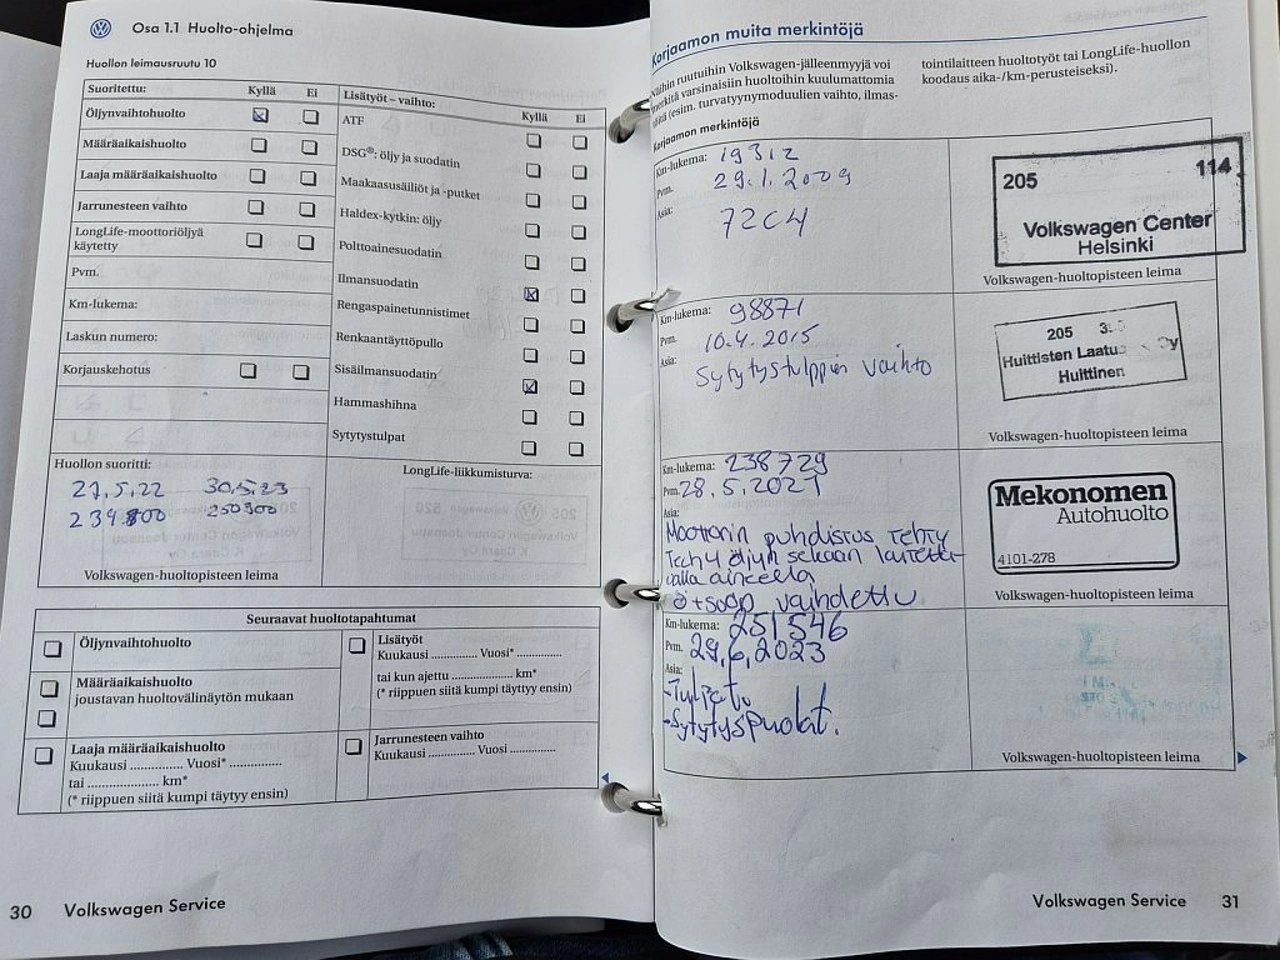 Osa 1.1 Huolto-ohjelma
Huollon leimausruutu 10
Suoritettu: Kyllä Ei
Öljynvaihtohuolto
Määräaikaishuolto
Laaja määräaikaishuolto
Jarrunesteen vaihto
LongLife-moottoriöljyä
käytetty
Pvm.
Km-lukema:
Laskun numero:
Korjauskehotus
Lisätyöt – vaihto: Kyllä Ei
ATF
DSG®: öljy ja suodatin
Maakaasusäiliöt ja -putket
Haldex-kytkin: öljy
Polttoainesuodatin
Ilmansuodatin
Rengaspainetunnistimet
Renkaantäyttöpullo
Sisäilmansuodatin
Hammashihna
Sytytystulpat
Huollon suoritti:
27.5.22 30.5.23
239.800 250900
Volkswagen-huoltopisteen leima
LongLife-liikkumisturva:
Seuraavat huoltotapahtumat
Öljynvaihtohuolto
Määräaikaishuolto
joustavan huoltovälinäytön mukaan
Laaja määräaikaishuolto
Kuukausi ............... Vuosi* ...............
tai ..................... km*
(* riippuen siitä kumpi täytyy ensin)
Lisätyöt
Kuukausi ............. Vuosi* .............
tai kun ajettu .................... km*
(* riippuen siitä kumpi täyttyy ensin)
Jarrunesteen vaihto
Kuukausi ............. Vuosi .............
30 Volkswagen Service
Korjaamon muita merkintöjä
Näihin ruutuihin Volkswagen-jälleenmyyjä voi
merkitä varsinaisiin huoltoihin kuulumattomia
töitä (esim. turvatyynymoduulien vaihto, ilmas-
tointilaitteen huoltotyöt tai LongLife-huollon
koodaus aika-/km-perusteiseksi).
Korjaamon merkintöjä
Km-lukema: 19312
Pvm. 29.1.2009
Asia: 72C4
205 114
Volkswagen Center
Helsinki
Volkswagen-huoltopisteen leima
Km-lukema: 98871
Pvm. 10.4.2015
Asia: Sytytystulppien vaihto
205
Huittisten Oy
Huittinen
Volkswagen-huoltopisteen leima
Km-lukema: 238729
Pvm. 28.5.2021
Asia:
Moottorin puhdistus tehty
Tech4 öljyn sekaan laitetta-
valla aineella
ö+suod vaihdettu
Mekonomen
Autohuolto
4101-278
Volkswagen-huoltopisteen leima
Km-lukema: 251546
Pvm. 29.6.2023
Asia:
-Sytytyspuolat.
Volkswagen-huoltopisteen leima
Volkswagen Service 31